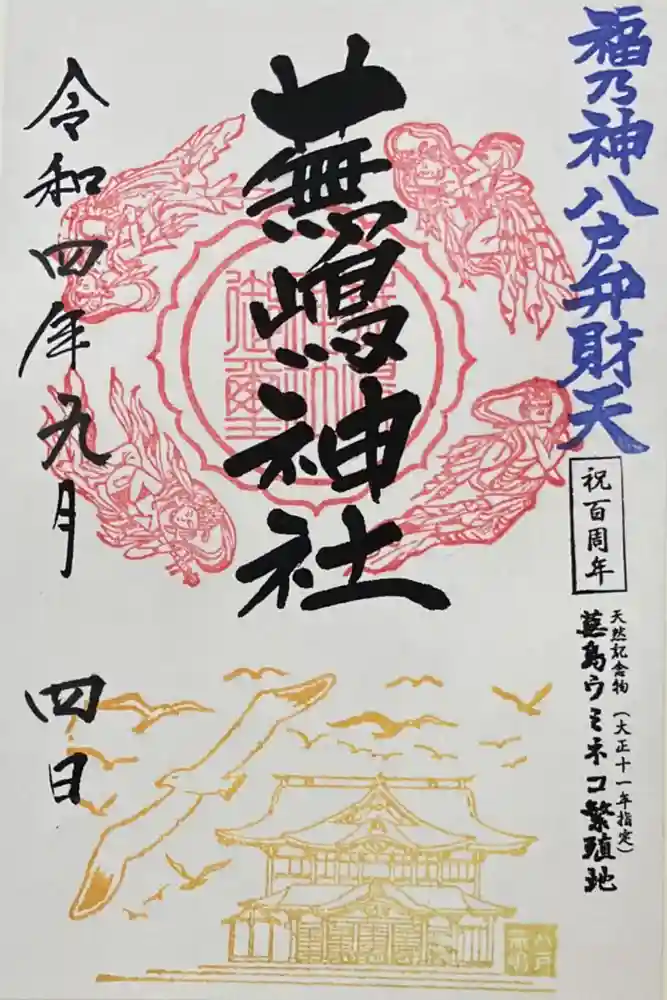 福乃神八戸弁財天
祝百周年
天然記念物（大正十一年指定）
蕪島ウミネコ繁殖地
蕪嶋神社
令和四年九月 四日